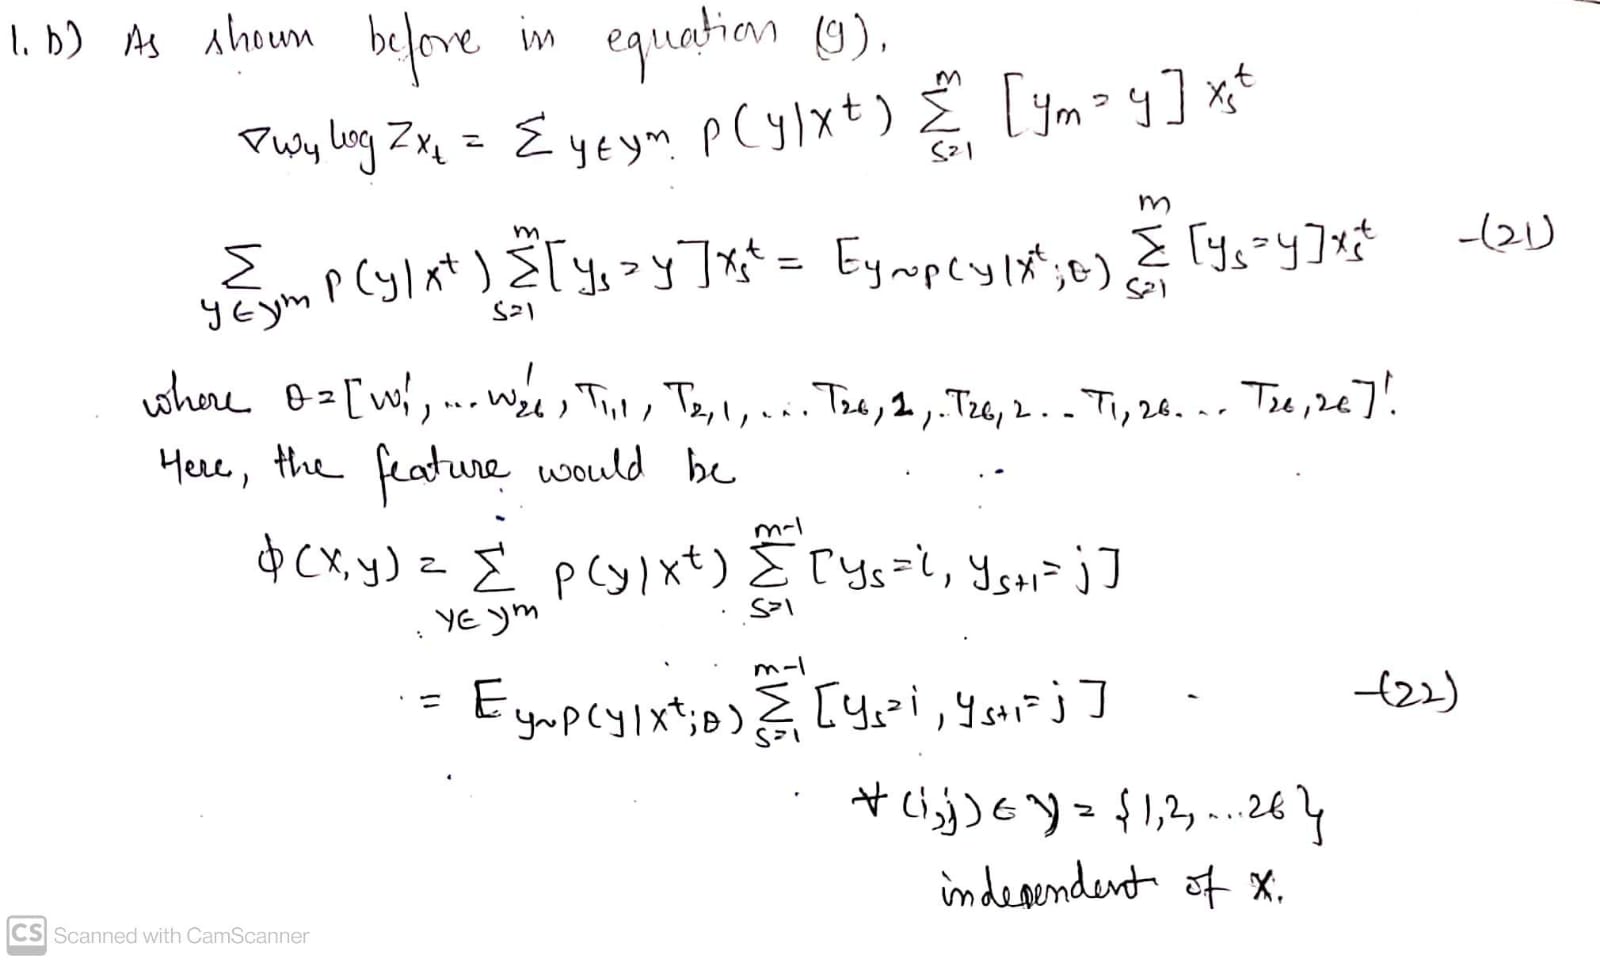 1. b) As shown before in equation (9),
∇wy log Zxt = Σ y∈Y^m p(y|x^t) Σ_{s=1}^{m} [ym = y] x_s^t
Σ_{y∈Y^m} p(y|x^t) Σ_{s=1}^{m} [y_s = y] x_s^t = E_{y~p(y|x^t;θ)} Σ_{s=1}^{m} [y_s = y] x_s^t -(21)
where θ = [w_1', ... w_26', T_{1,1}, T_{2,1}, ... T_{26,1}, .. T_{26,2} .. T_{1,26} ... T_{26,26}]'.
Here, the feature would be
φ(X,y) = Σ_{y∈Y^m} p(y|x^t) Σ_{s=1}^{m-1} [y_s = i, y_{s+1} = j]
= E_{y~p(y|x^t;θ)} Σ_{s=1}^{m-1} [y_s = i, y_{s+1} = j] -(22)
∀ (i,j) ∈ Y = {1,2, ... 26}
independent of X.
CS Scanned with CamScanner